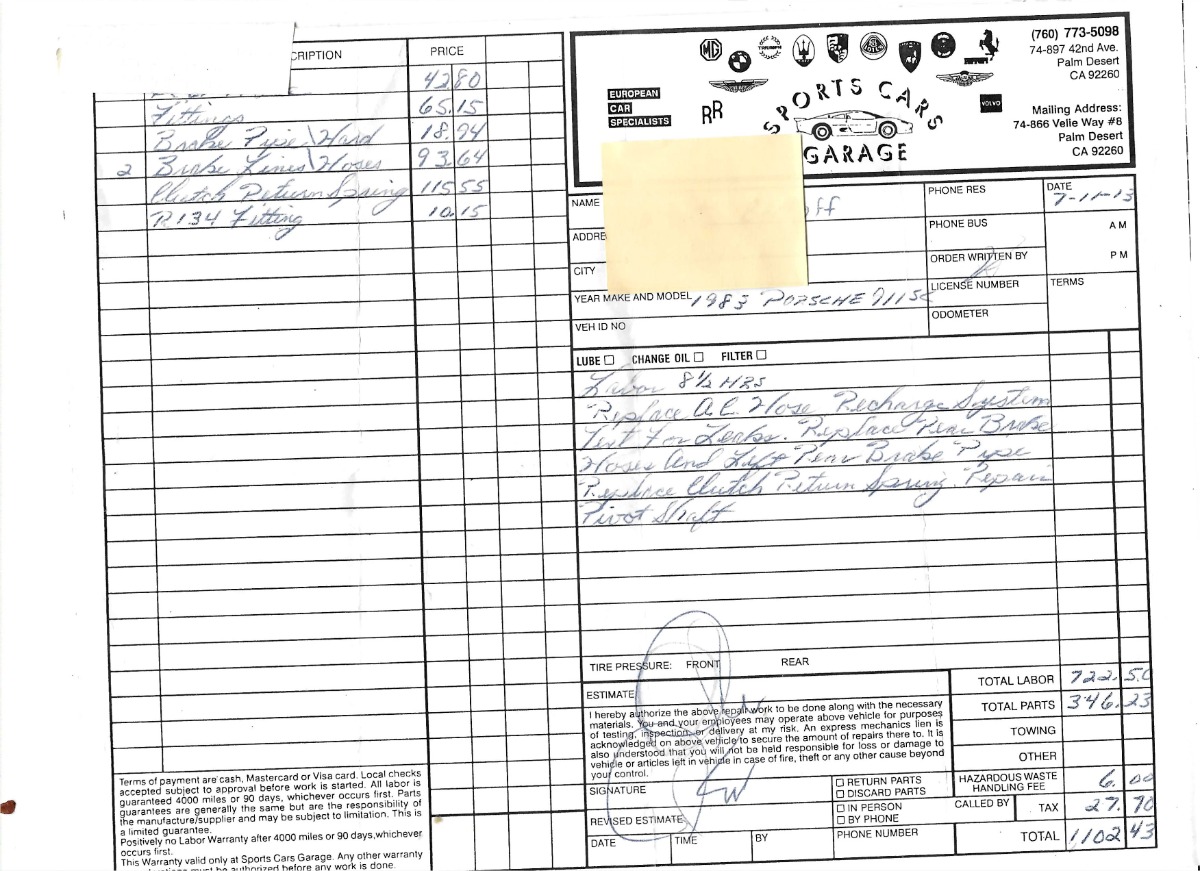 CRIPTION PRICE
42 80
Fittings 65.15
Brake Pipe \ Hard 18.94
2 Brake Lines \ Hoses 93.64
Clutch Return Spring 115.55
R134 Fitting 10.15
Terms of payment are cash, Mastercard or Visa card. Local checks
accepted subject to approval before work is started. All labor is
guaranteed 4000 miles or 90 days, whichever occurs first. Parts
guarantees are generally the same but are the responsibility of
the manufacture/supplier and may be subject to limitation. This is
a limited guarantee.
Positively no Labor Warranty after 4000 miles or 90 days, whichever
occurs first.
This Warranty valid only at Sports Cars Garage. Any other warranty
must be authorized before any work is done.
EUROPEAN
CAR
SPECIALISTS
MG
BMW
TRIUMPH
RR
Ferrari
VOLVO
SPORTS CARS
GARAGE
(760) 773-5098
74-897 42nd Ave.
Palm Desert
CA 92260
Mailing Address:
74-866 Velie Way #8
Palm Desert
CA 92260
NAME ff
PHONE RES
DATE
7-11-13
ADDRE
PHONE BUS
AM
CITY
ORDER WRITTEN BY
PM
YEAR MAKE AND MODEL 1983 PORSCHE 911SC
LICENSE NUMBER
TERMS
VEH ID NO
ODOMETER
LUBE CHANGE OIL FILTER
Labor 8 1/2 HRS
Replace A.C. Hose Recharge System
Test For Leaks. Replace Rear Brake
Hoses And Left Rear Brake Pipe
Replace Clutch Return Spring. Repair
Pivot Shaft
TIRE PRESSURE: FRONT REAR
ESTIMATE
I hereby authorize the above repair work to be done along with the necessary
materials. You and your employees may operate above vehicle for purposes
of testing, inspection, or delivery at my risk. An express mechanics lien is
acknowledged on above vehicle to secure the amount of repairs there to. It is
also understood that you will not be held responsible for loss or damage to
vehicle or articles left in vehicle in case of fire, theft or any other cause beyond
your control.
SIGNATURE
RETURN PARTS
DISCARD PARTS
REVISED ESTIMATE
IN PERSON
BY PHONE
CALLED BY
DATE TIME BY PHONE NUMBER
TOTAL LABOR 722.50
TOTAL PARTS 346.23
TOWING
OTHER
HAZARDOUS WASTE
HANDLING FEE 6.00
TAX 27.70
TOTAL 1,102 43